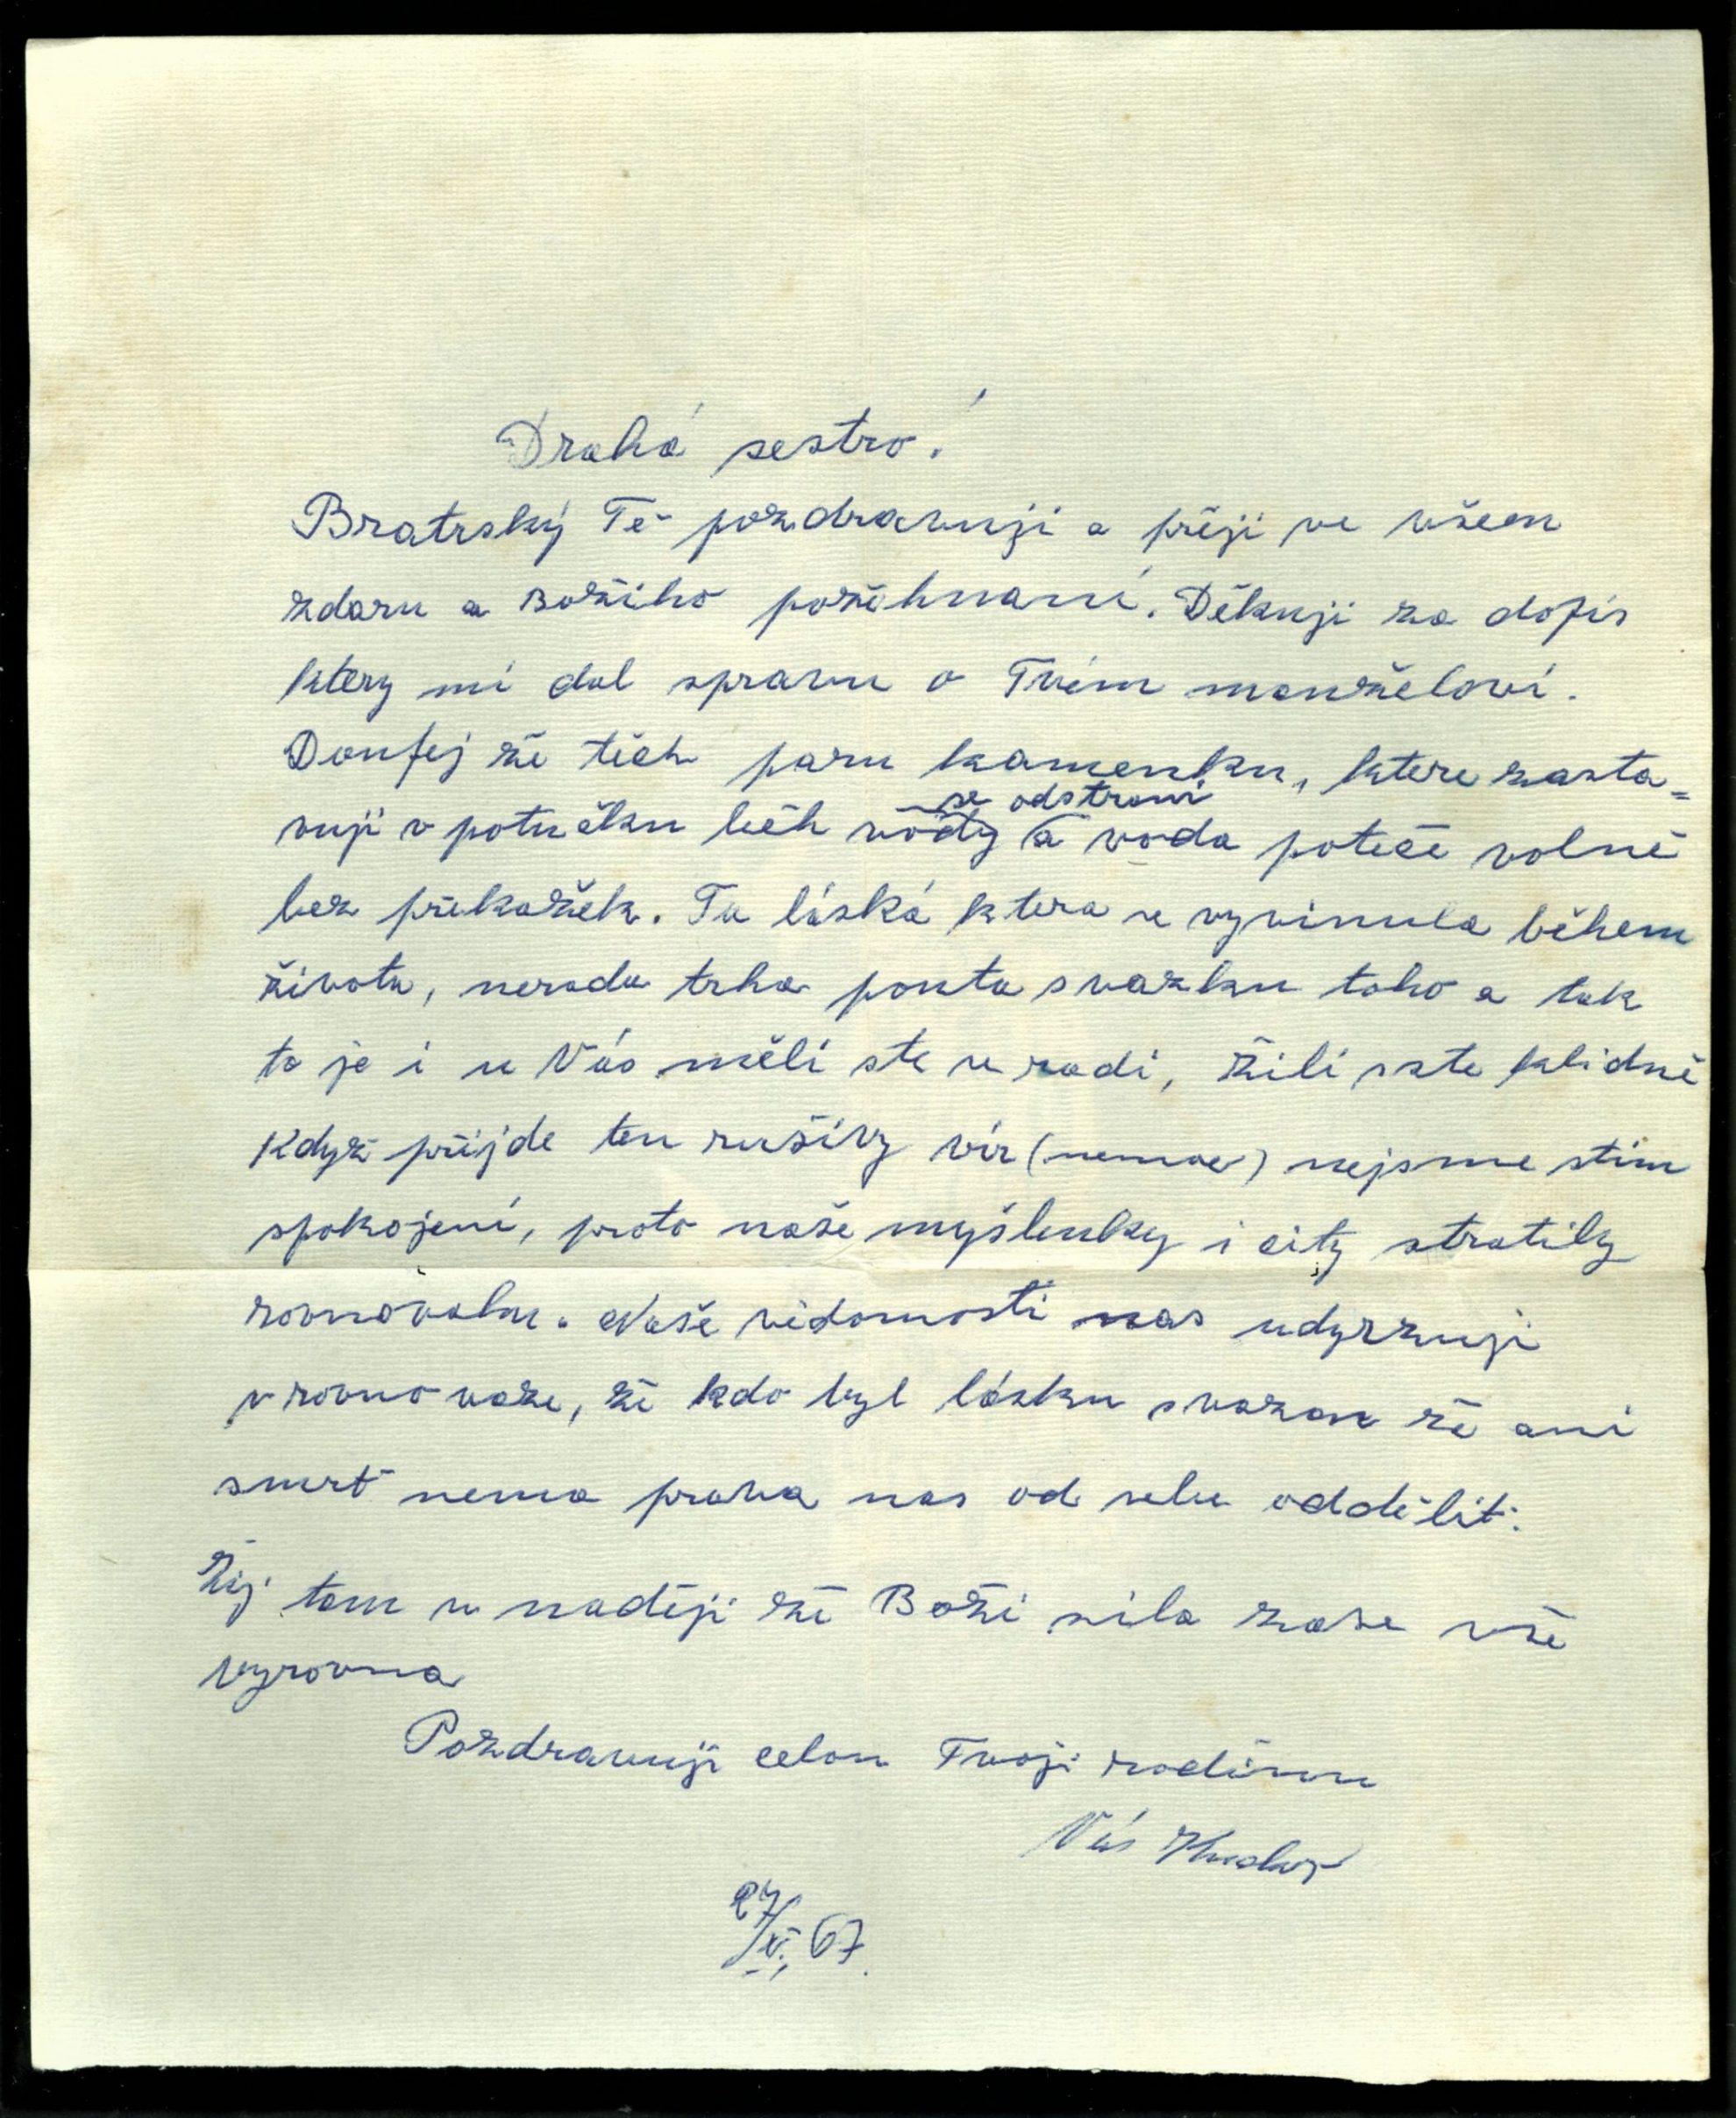 Drahá sestro!
Bratrský Tě pozdravuji a přeji ve všem
zdaru a Božího požehnaní. Děkuji za dopis
ktery mi dal spravu o Tvém manželovi.
Doufej že těch paru kamenku, ktere zasta=
vuji v potučku běh vody se odstraní a voda poteče volně
bez překažek. Ta láská ktera se vyvinula během
života, nerada trha pouta svazku toho a tak
to je i u Vás měli ste se radi, žili ste klidně
Když příjde ten rušivy vír (nemoc) nejsme stím
spokojeni, proto naše myšlenky i city stratily
rovnováhu. Naše vědomosti nas udyržuji
v rovnováze, že kdo byl lásku svazan že ani
smrt nema prava nas od sebe oddělit.
Žij tam v naději že Boži sila zase vše
vyrovna
Pozdravuji celou Tvoji rodinu
Váš
27/XI. 67.